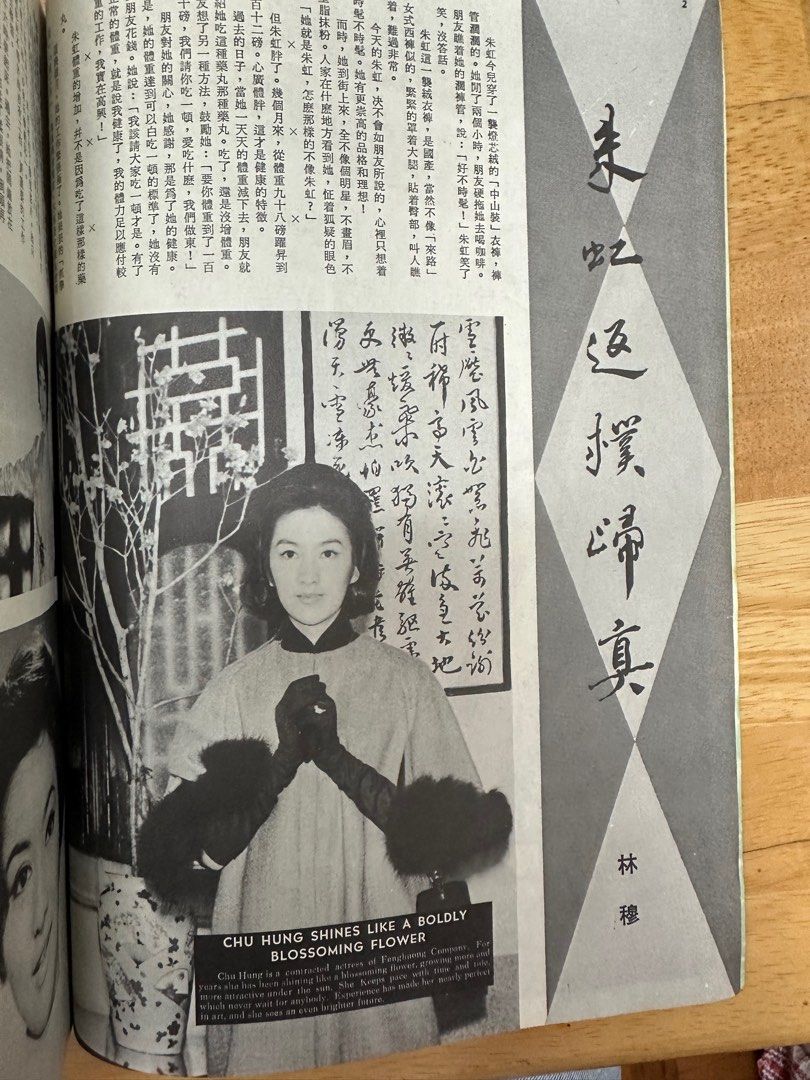 2
朱虹返樸歸真
林穆
朱虹今兒穿了一襲燈芯絨的「中山裝」衣褲，褲
管濶濶的。她閒了兩個小時，朋友硬拖她去喝咖啡。
朋友瞧着她的濶褲管，說：「好不時髦！」朱虹笑了
笑，沒答話。
朱虹這一襲絨衣褲，是國產，當然不像「來路」
女式西褲似的，緊緊的罩着大腿，貼着臀部，叫人瞧
着，難過非常。
今天的朱虹，決不會如朋友所說的，心裡只想着
時髦不時髦。她有更崇高的品格和理想！
而時，她到街上來，全不像個明星，不畫眉，不
脂抹粉。人家在什麼地方看到她，怔着狐疑的眼色
「她就是朱虹，怎麽那樣的不像朱虹？」
× × ×
但朱虹胖了。幾個月來，從體重九十八磅躍昇到
百十二磅。心廣體胖，這才是健康的特徵。
過去的日子，當她一天天的體重減下去，朋友就
紹她吃這種藥丸那種藥丸。吃了，還是沒增體重。
友想了另一種方法，鼓勵她：「要你體重到了一百
十磅，我們請你吃一頓，愛吃什麽，我們做東！」
朋友對她的關心，她感謝，那是爲了她的健康。
是，她的體重達到可以白吃一頓的標準了，她沒有
朋友花錢。她說：「我該請大家吃一頓才是。有了
正常的體重，就是說我健康了，我的體力足以應付較
重的工作，我實在高興！」
× × ×
朱虹體重的增加，并不是因爲吃了這樣那樣的藥
丸。
雪壓冬雲白絮飛萬花紛謝
一时稀高天滚滚寒流急大地
微微煖氣吹獨有英雄驅虎
更無豪杰怕羆
漫天雪凍死
CHU HUNG SHINES LIKE A BOLDLY
BLOSSOMING FLOWER
Chu Hung is a contracted actress of Fenghuong Company. For
years she has been shining like a blossoming flower, growing more and
more attractive under the sun. She Keeps pace with time and tide,
which never wait for anybody. Experience has made her nearly perfect
in art, and she sees an even brighter future.